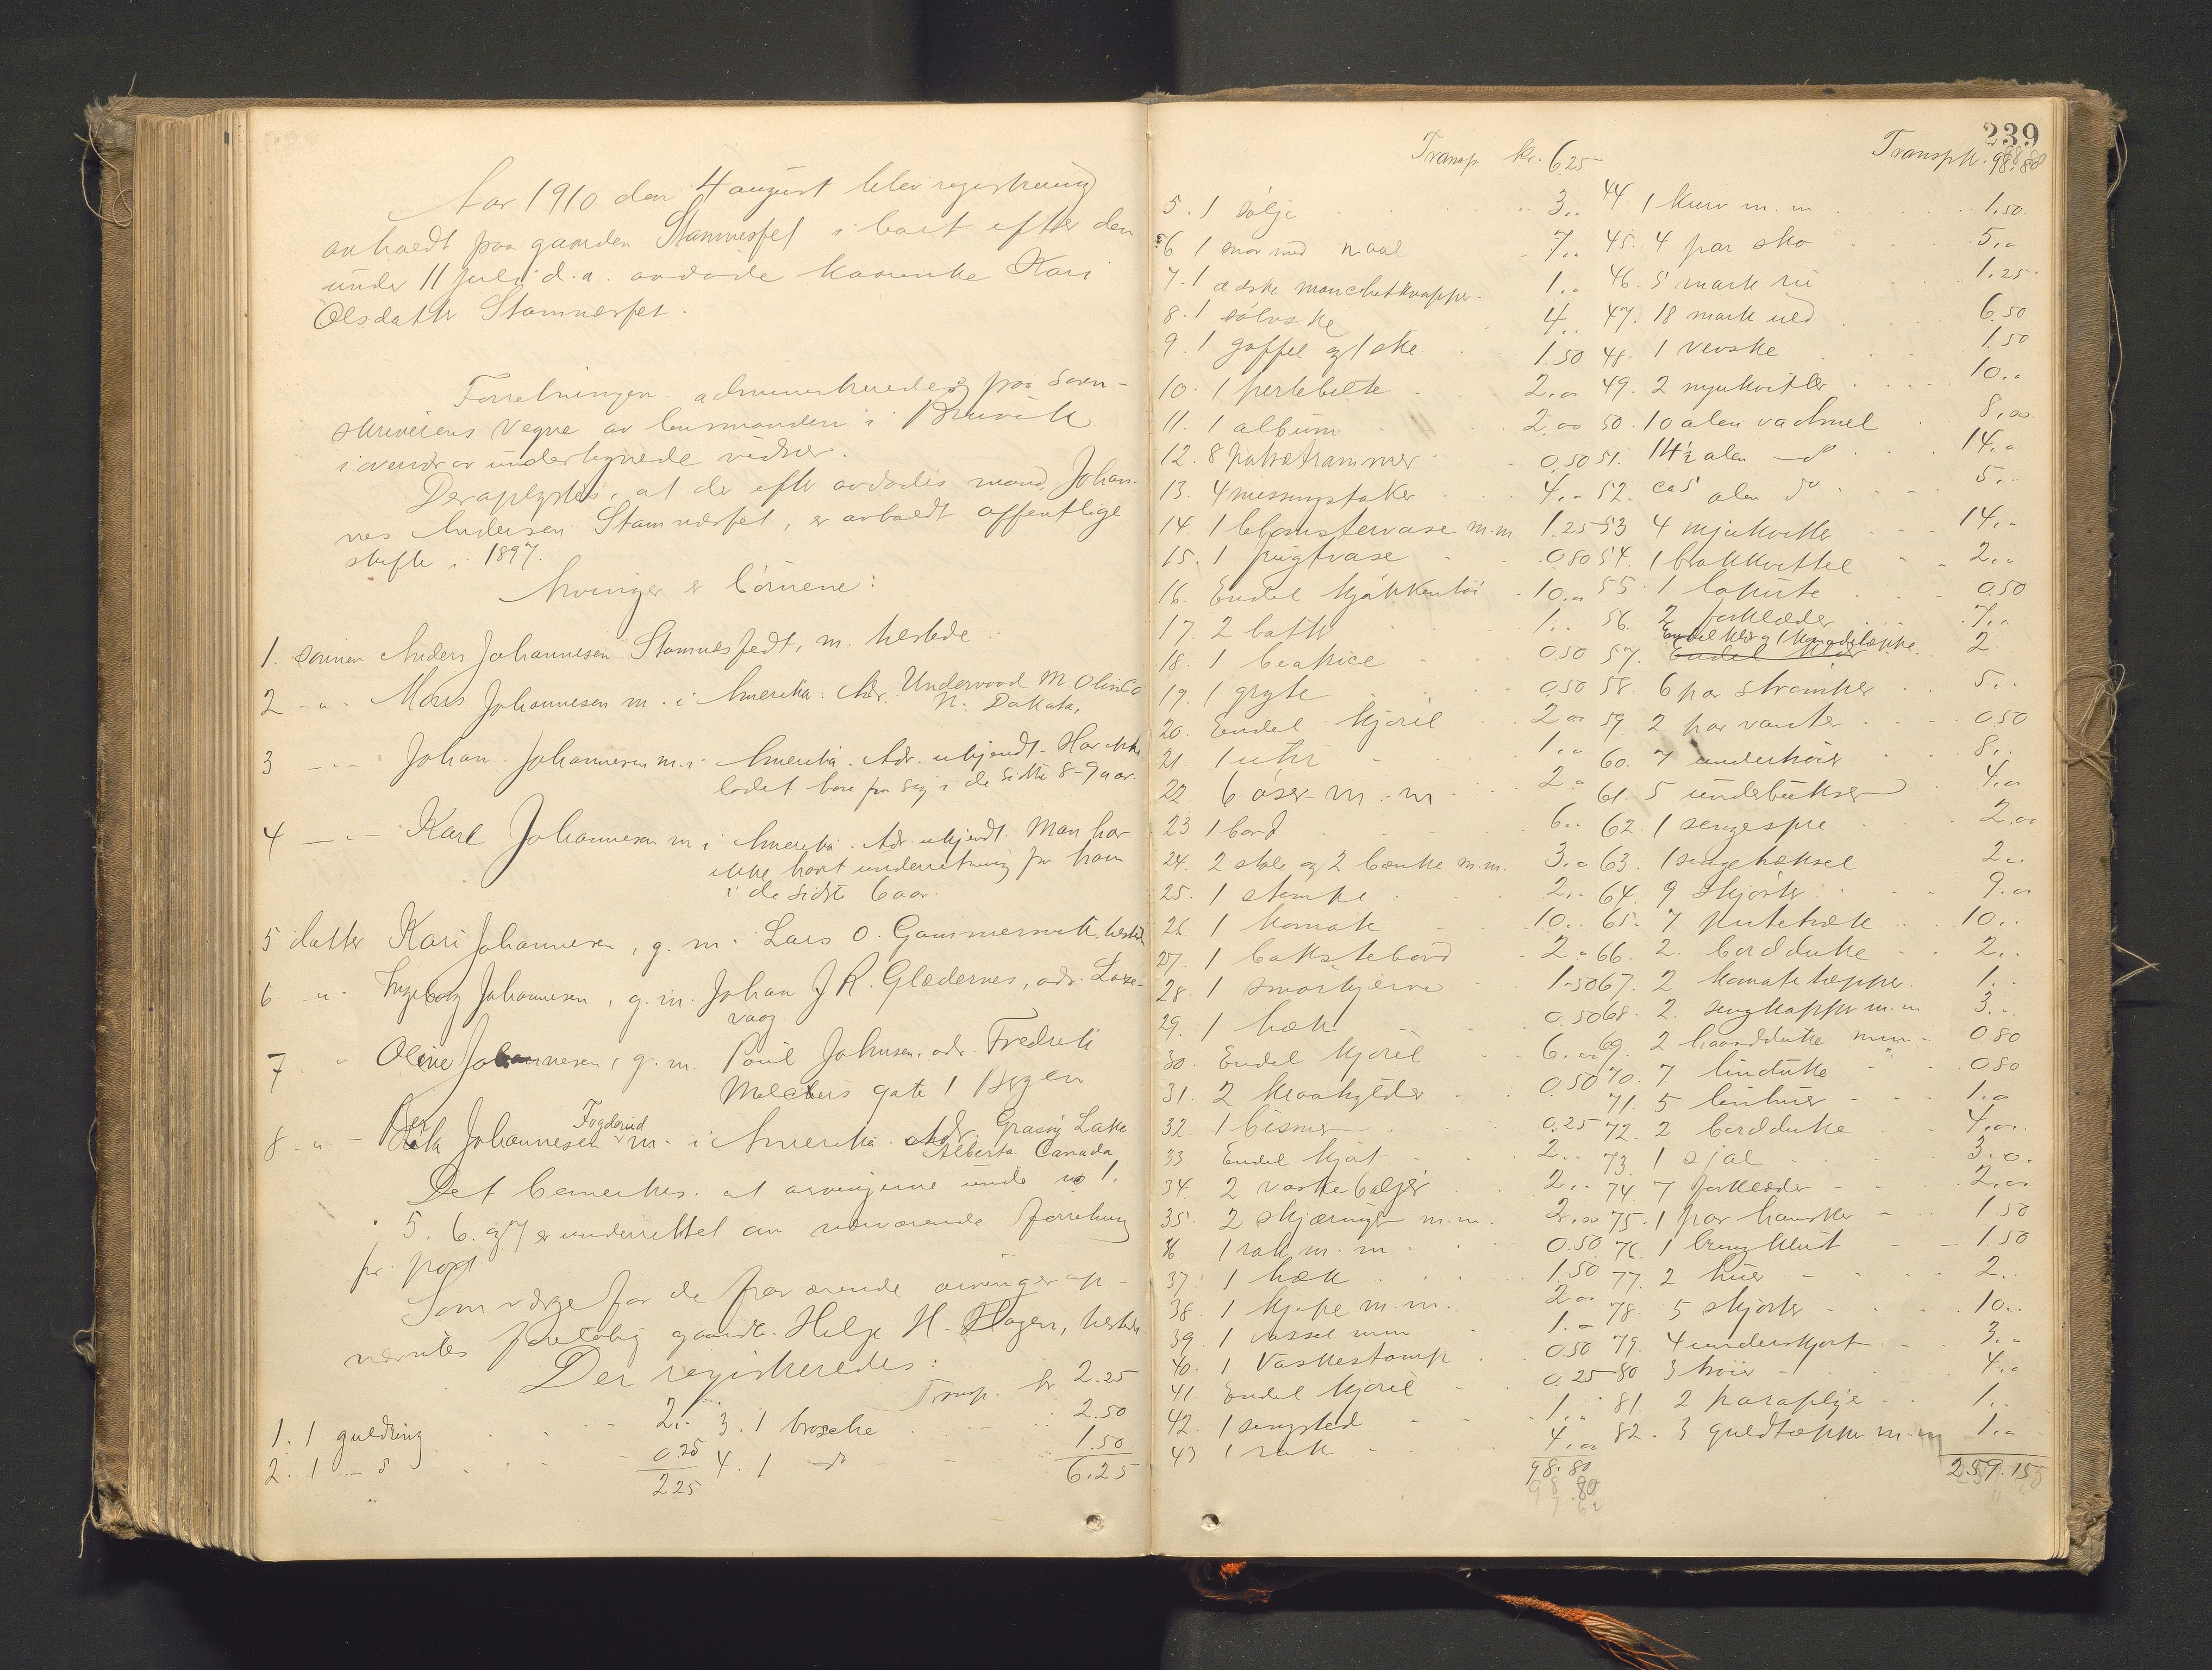 Aar 1910 den 4 august blev registrering
avholdt paa gaarden Stamnesfet i boet efter den
under 11 juli d.a. avdøde kaarenke Kari
Olsdatter Stamnesfet.
Forretningen administreredes paa soren-
skriverens vegne av lensmanden i Bruvik
i overvær av undertegnede vidner.
Der oplystes, at der efter avdødes mand, Johan-
nes Andersen Stamnesfet, er avholdt offentlige
skifte i 1897.
Arvinger er børnene:
1. sønnen Anders Johannesen Stamnesfedt, m. herstede
2 -"- Mons Johannesen m. i Amerika. Adr. Underwood M. Olin Co
N. Dakota.
3 -"- Johan Johannesen m. i Amerika. Adr. ukjendt. Har ikke
ladet høre fra sig i de sidste 8-9 aar.
4 -"- Karl Johannesen m i Amerika. Adr. ukjendt. Man har
ikke havt underretning fra ham
i de sidste 6 aar.
5 datter Kari Johannesen, g. m. Lars O. Gammersvik, herstede
6. " Ingeborg Johannesen, g. m. Johan J R. Glædernes, adr. Laxe-
vaag
7 " Oline Johannesen, g. m. Poul Johnsen, adr. Fredrik
Melchers gate 1 Bergen
8 -"- Johannesen Fogderud m. i Amerika. Adr. Grassy Lake
Alberta Canada
Det bemerkes. at arvingerne under no 1.
5. 6. og 7 er underrettet om nærværende forretning
pr. post.
Som værge for de fraværende arvinger op-
nævntes foreløbig gaardbr. Helge H. Hagen, herstede
Der registreredes:
Transp. kr 2.25
1. 1 guldring 2.. 3. 1 brosche 2.50
2. 1 -d 0.25 4. 1 -d 1.50
2.25 6.25
239
Transp. kr. 6.25 Transp kr. 98.80
5. 1 sølje 3.. 44. 1 kurv m. m 1.50
6 1 snor med naal 7.. 45. 4 par sko 5..
7. 1 æske manchetknapper 1.. 46. 5 mark 1.25
8. 1 sølvske 4.. 47. 18 mark uld 6.50
9. 1 gaffel og 1 ske 1.50 48. 1 vevske 1.50
10. 1 perlebelte 2.00 49. 2 nyekvitler 10..
11. 1 album 2.00 50. 10 alen vadmel 8.00
12. 8 potrætrammer 0.50 51. 14½ alen -d 14..
13. 4 messingstaker 4.. 52. ca 5 alen do 5..
14. 1 blomstervase m.m 1.25 53 4 14..
15. 1 frugtvase 0.80 54. 1 brakkvittel 2..
16. Endel kjøkkentøi 10.. 55. 1 0.50
17. 2 1.. 56. 2 forklæder 7..
18. 1 0.50 57. Endel klær og 1 komodetæppe 2
19. 1 gryte 0.50 58. 6 par strømper 5..
20. Endel kjørel 2.00 59. 2 par vanter 0.50
21. 1 uhr 1.. 60. 7 8..
22. 6 øser m. m 2. 61. 5 underbukser 4..
23 1 bord 6.. 62. 1 sengespre 2.00
24. 2 stole og 2 bænke m.m. 3.. 63. 1 2..
25. 1 stampe 2.. 64. 9 skjorter 9..
26. 1 komode 10.. 65. 7 putetræk 10..
27. 1 bakstebord 2. 66. 2 bordduke 2..
28. 1 smørkjerne 1.50 67. 2 komodetæpper 1..
29. 1 0.50 68. 2 sengkapper m. m 3..
30. Endel kjørel 6.. 69. 2 haandduke m.m 0.80
31. 2 kraakylder 0.50 70. 7 linduke 0.80
32. 1 bismer 0.25 71. 5 linhuer 1..
33. Endel kjøt 2.. 72. 2 bordduke 4..
34. 2 vaskebaljer 2.. 73. 1 sjal 3..
35. 2 skjæringer m.m. 2.00 74. 7 forklæder 2..
36. 1 rok m. m 0.50 75. 1 par hansker 1.50
37. 1 1.50 76. 1 1.50
38. 1 m.m. 2.. 77. 2 huer 2..
39. 1 m.m 1.. 78. 5 skjorter 10..
40. 1 vaskestamp 0.50 79. 4 underskjort 3..
41. Endel kjørel 0.25 80 3 4..
42. 1 sengsted 1.. 81. 2 paraplye 1..
43 1 rok 4.. 82. 3 guldtæpper m.m 1..
98.80 259.15
98.80